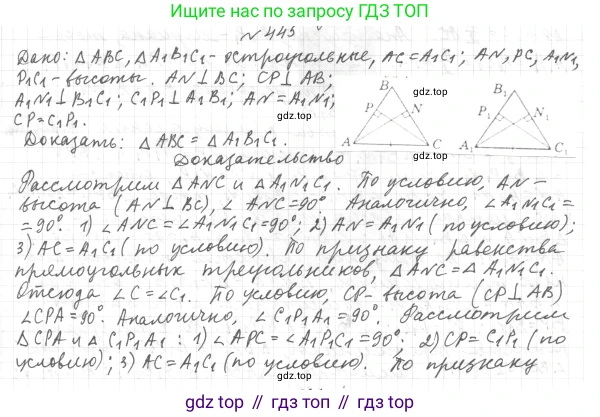 Ищите нас по запросу ГДЗ ТОП
№ 445
gdz.top
Дано: △ABC, △A1B1C1 - остроугольные, AC=A1C1; AN, PC, A1N1,
P1C1 - высоты. AN⊥BC; CP⊥AB;
A1N1⊥B1C1; C1P1⊥A1B1; AN=A1N1;
CP=C1P1.
Доказать: △ABC=△A1B1C1.
B
P N
A C
B1
P1 N1
A1 C1
gdz.top
gdz.top
Доказательство
gdz.top
Рассмотрим △ANC и △A1N1C1. По условию, AN-
высота (AN⊥BC), ∠ANC=90°. Аналогично, ∠A1N1C1=
=90°. 1) ∠ANC=∠A1N1C1=90°; 2) AN=A1N1 (по условию);
3) AC=A1C1 (по условию). По признаку равенства
прямоугольных треугольников, △ANC=△A1N1C1.
Отсюда ∠C=∠C1. По условию, CP-высота (CP⊥AB)
∠CPA=90°. Аналогично, ∠C1P1A1=90°. Рассмотрим
△CPA и △C1P1A1: 1) ∠APC=∠A1P1C1=90°; 2) CP=C1P1 (по
условию); 3) AC=A1C1 (по условию). По признаку
gdz.top
gdz.top
gdz top // gdz top // gdz.top